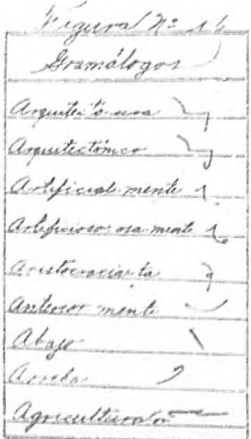 Figura Nº
Gramálogos
Arquitecto ura
Arquitectónico
Artificial mente
Artificioso osa mente
Aristocracia ta
Anterior mente
Abajo
Arriba
Agricultura or